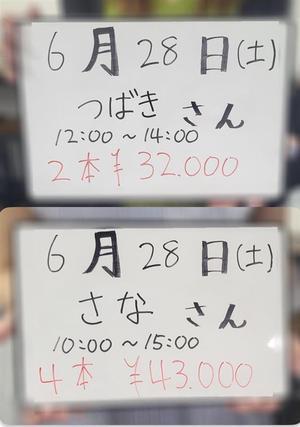 6月28日(土)
つばき さん
12:00～14:00
2本 ¥32.000
6月28日(土)
さな さん
10:00～15:00
4本 ¥43.000